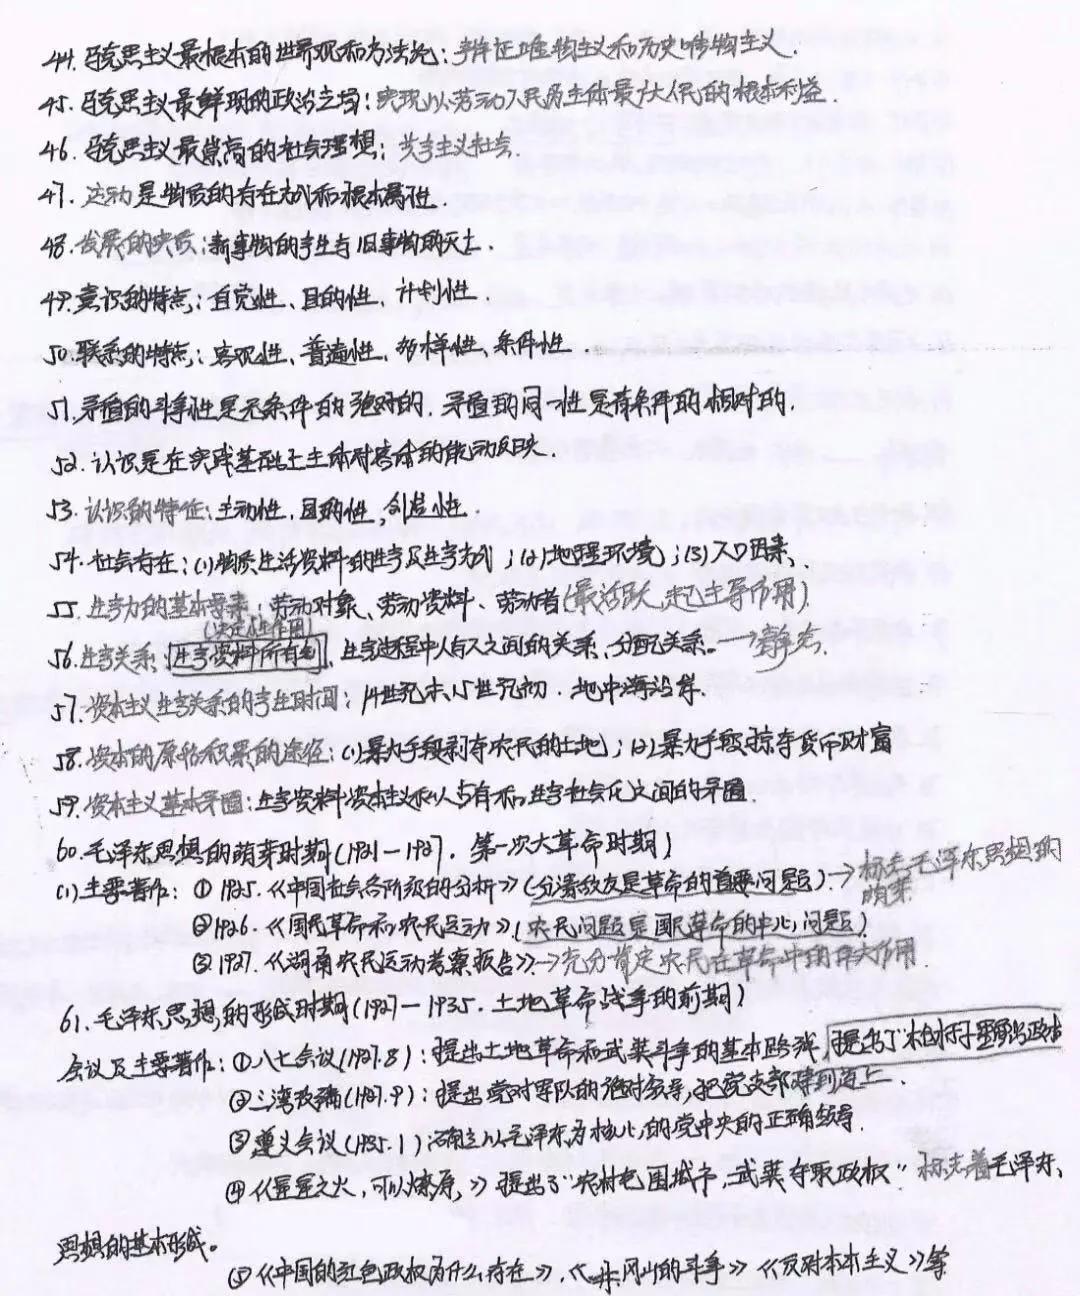 44. 马克思主义最根本的世界观和方法论：辩证唯物主义和历史唯物主义.
45. 马克思主义最鲜明的政治立场：实现以劳动人民为主体最广大人民的根本利益.
46. 马克思主义最崇高的社会理想：共产主义社会.
47. 运动是物质的存在方式和根本属性.
48. 发展的实质：新事物的产生与旧事物的灭亡.
49. 意识的特点：自觉性、目的性、计划性
50. 联系的特点：客观性、普遍性、多样性、条件性
51. 矛盾的斗争性是无条件的绝对的. 矛盾的同一性是有条件的相对的.
52. 认识是在实践基础上主体对客体的能动反映.
53. 认识的特征：主动性、目的性、创造性.
54. 社会存在：(1)物质生活资料的生产及生产方式；(2)地理环境；(3)人口因素.
55. 生产力的基本要素：劳动对象、劳动资料、劳动者(最活跃、起主导作用).
(决定性作用)
56. 生产关系：生产资料所有制、生产过程中人与人之间的关系、分配关系。→静态.
57. 资本主义生产关系的产生时间：14世纪末、15世纪初. 地中海沿岸.
58. 资本的原始积累的途径：(1)暴力手段剥夺农民的土地；(2)暴力手段掠夺货币财富
59. 资本主义基本矛盾：生产资料资本主义私人占有和生产社会化之间的矛盾.
60. 毛泽东思想的萌芽时期(1921—1927. 第一次大革命时期)
(1) 主要著作：① 1925.《中国社会各阶级的分析》(分清敌友是革命的首要问题)→标志毛泽东思想的萌芽
②1926.《国民革命和农民运动》(农民问题是国民革命的中心问题)
③ 1927.《湖南农民运动考察报告》→充分肯定农民在革命中的伟大作用.
61. 毛泽东思想的形成时期(1927—1935. 土地革命战争的前期)
会议及主要著作：①八七会议(1927.8)：提出土地革命和武装斗争的基本路线 提出了"枪杆子里头出政权
②三湾改编(1927.9)：提出党对军队的绝对领导，把党支部建到连上.
③遵义会议(1935.1)：确立以毛泽东为核心的党中央的正确领导.
④《星星之火，可以燎原》提出了"农村包围城市，武装夺取政权" 标志着毛泽东
思想的基本形成。
⑤《中国的红色政权为什么存在》、《井冈山的斗争》《反对本本主义》等